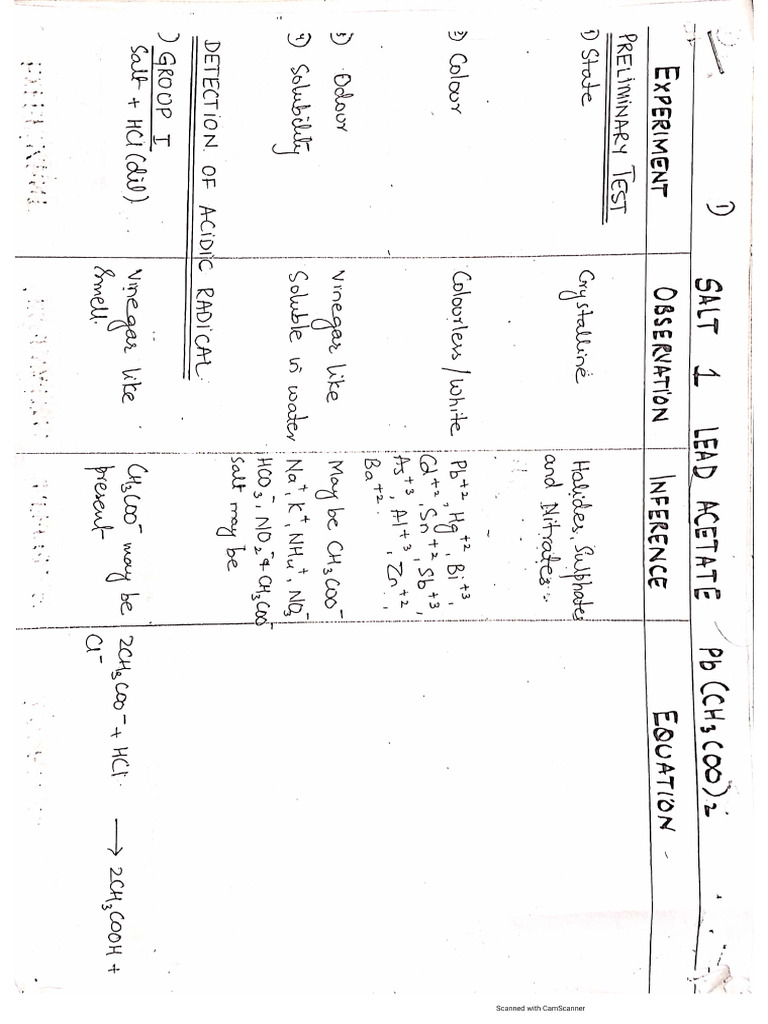 1) SALT 1 LEAD ACETATE Pb(CH3COO)2
EXPERIMENT OBSERVATION INFERENCE EQUATION
PRELIMINARY TEST
1) State Crystalline Halides, Sulphates
and Nitrates
2) Colour Colourless/White Pb+2, Hg+2, Bi+3,
Cd+2, Sn+2, Sb+3,
As+3, Al+3, Zn+2,
Ba+2.
3) Odour Vinegar like May be CH3COO-
4) Solubility Soluble in water Na+, K+, NH4+, NO3-
HCO3-, NO2- & CH3COO-
salt may be
DETECTION OF ACIDIC RADICAL
1) GROUP I
Salt + HCl (dil) Vinegar like CH3COO- may be 2CH3COO- + HCl → 2CH3COOH +
smell. present Cl-
Scanned with CamScanner